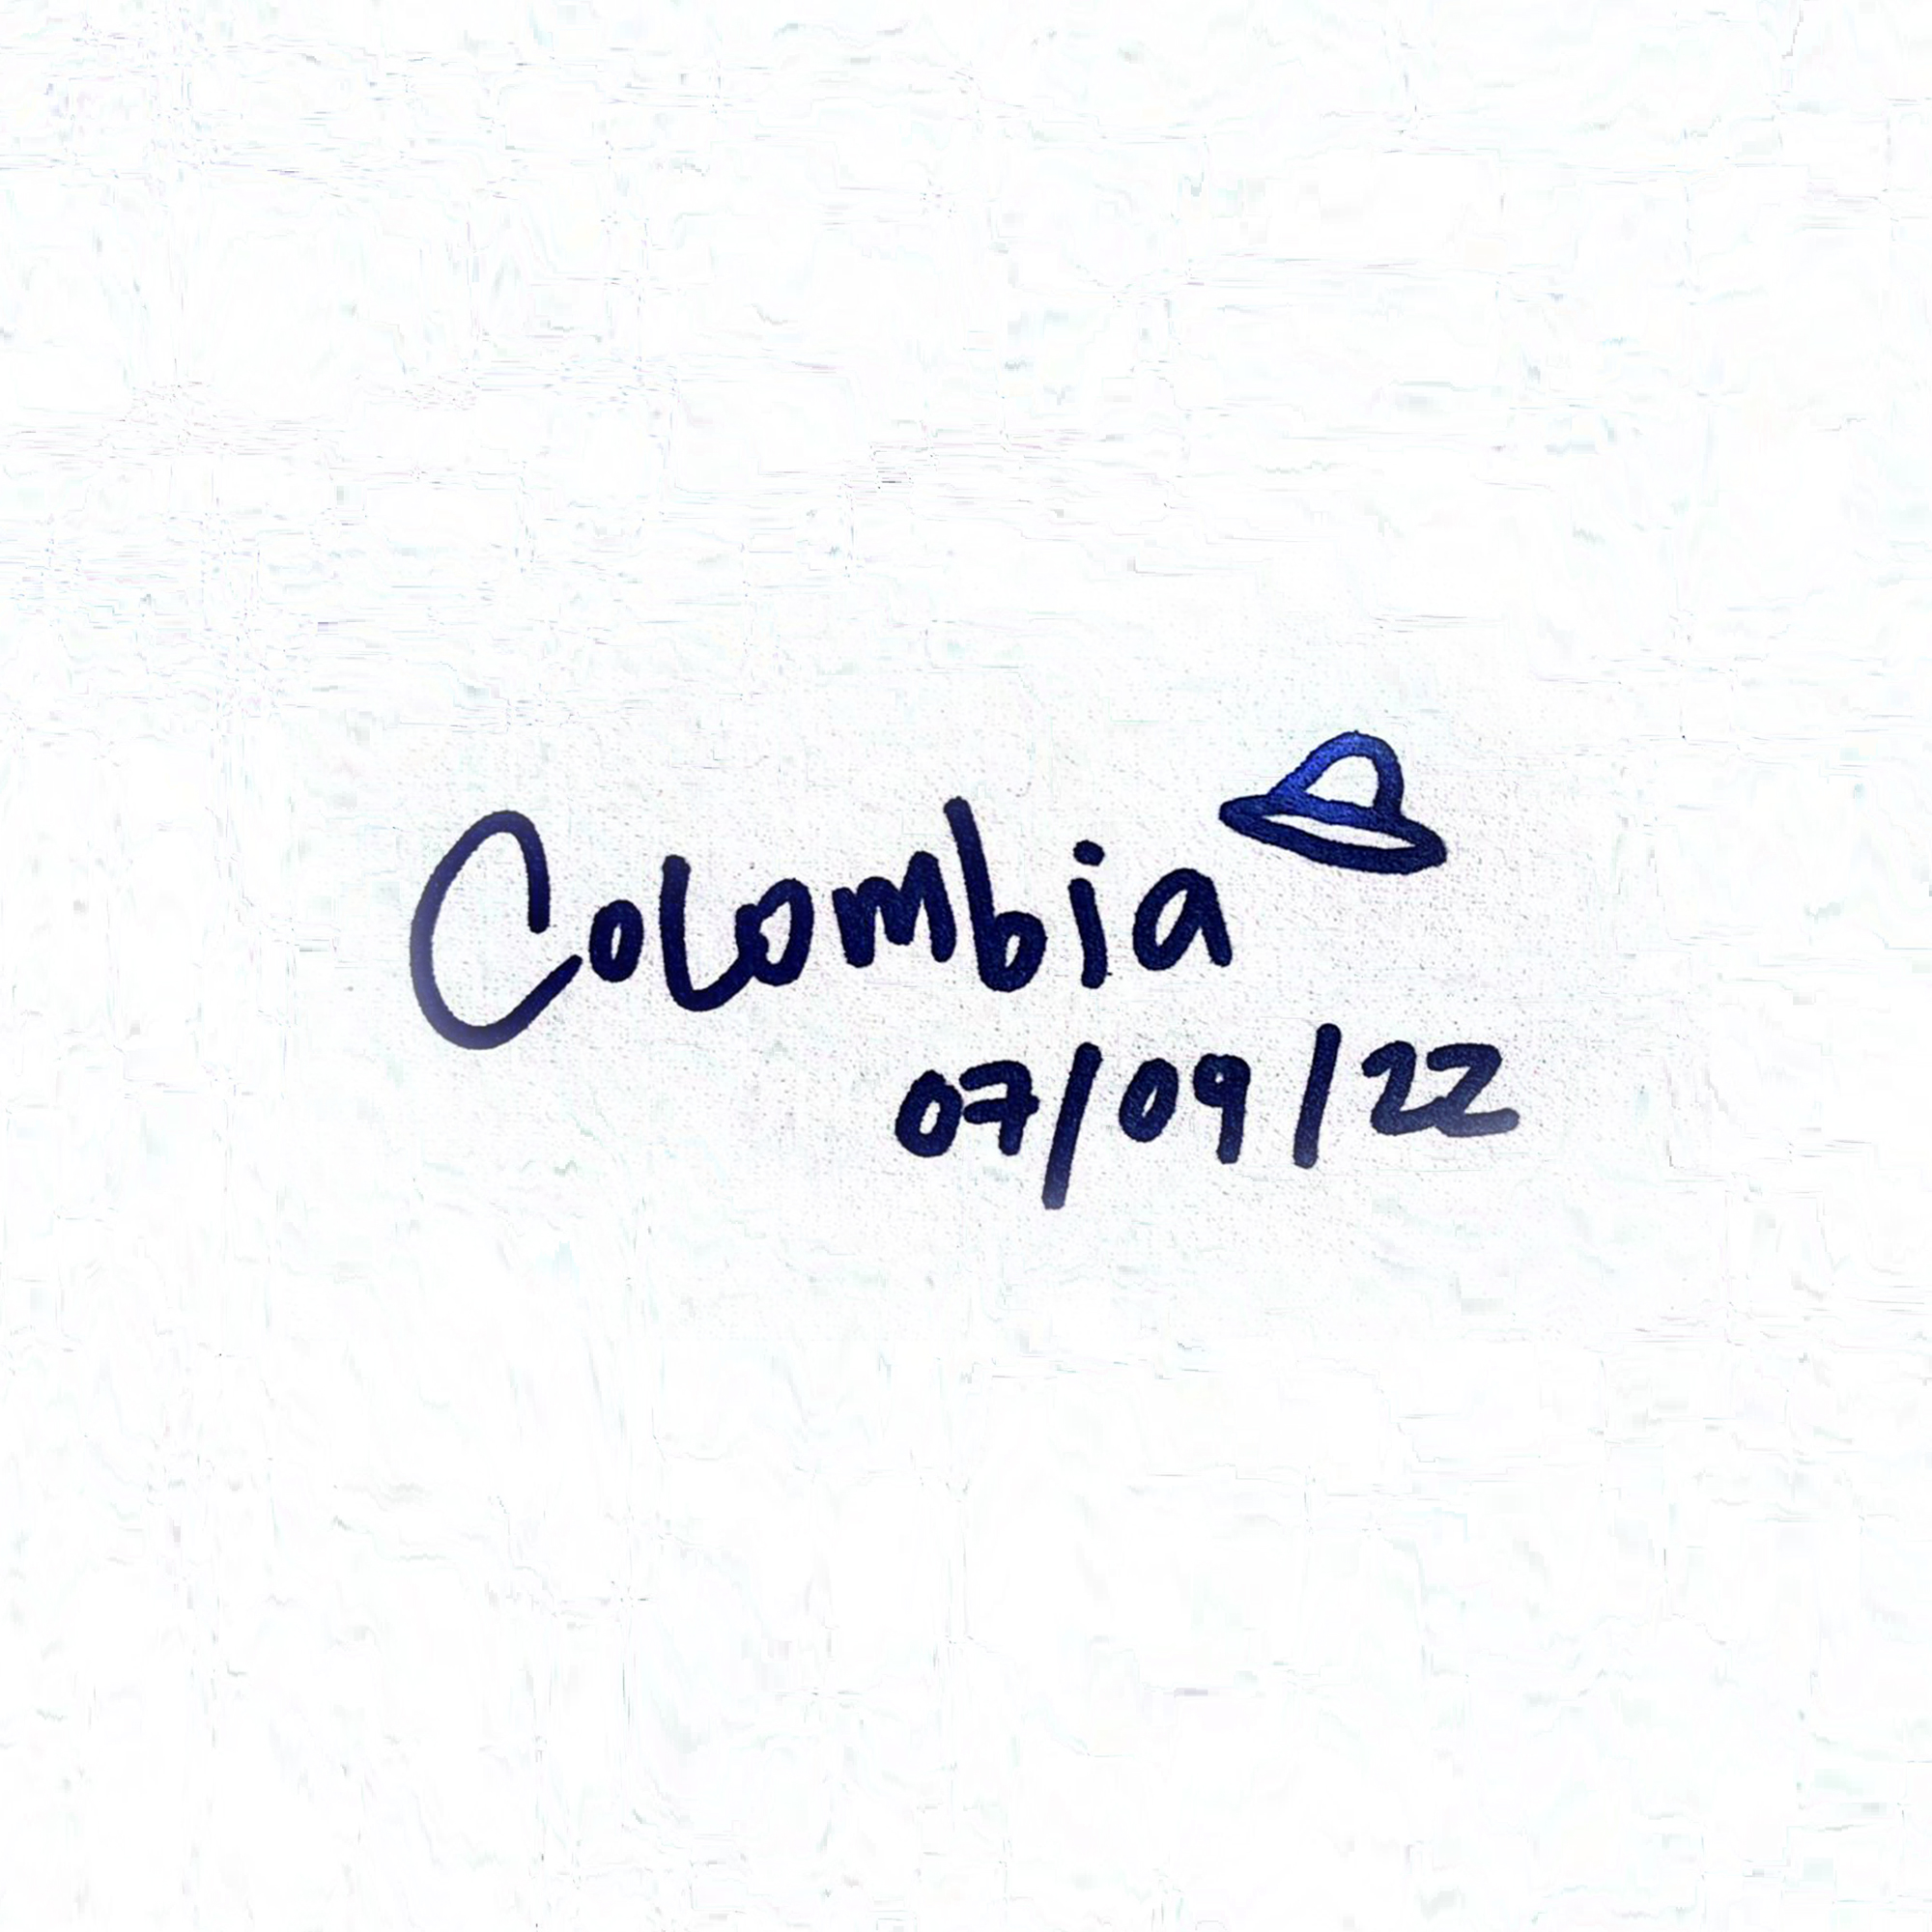 Colombia
07/09/22